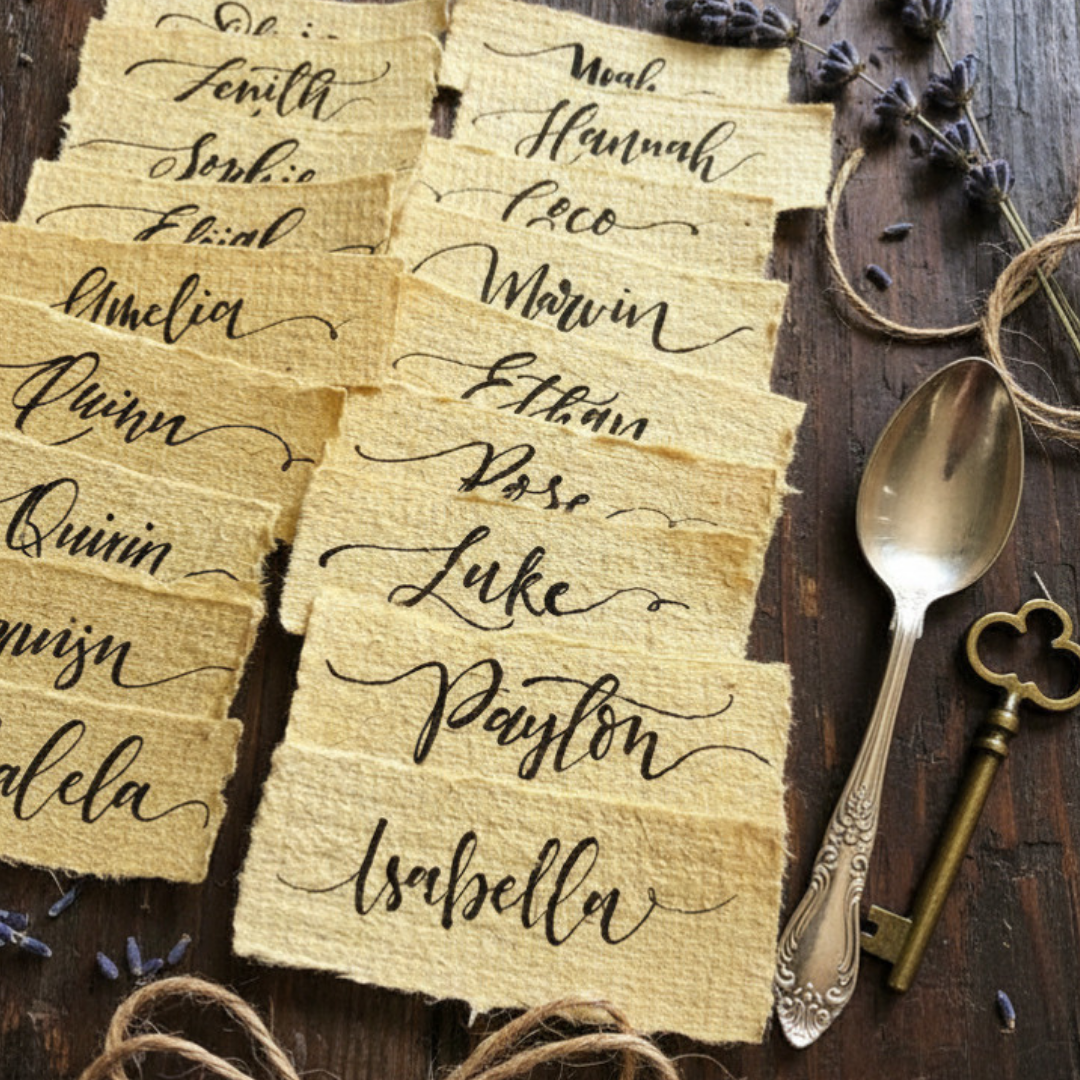 Zenith
Sophie
Elijah
Amelia
Quinn
Quirin
alela
Noah
Hannah
Coco
Marvin
Ethan
Rose
Luke
Payton
Isabella